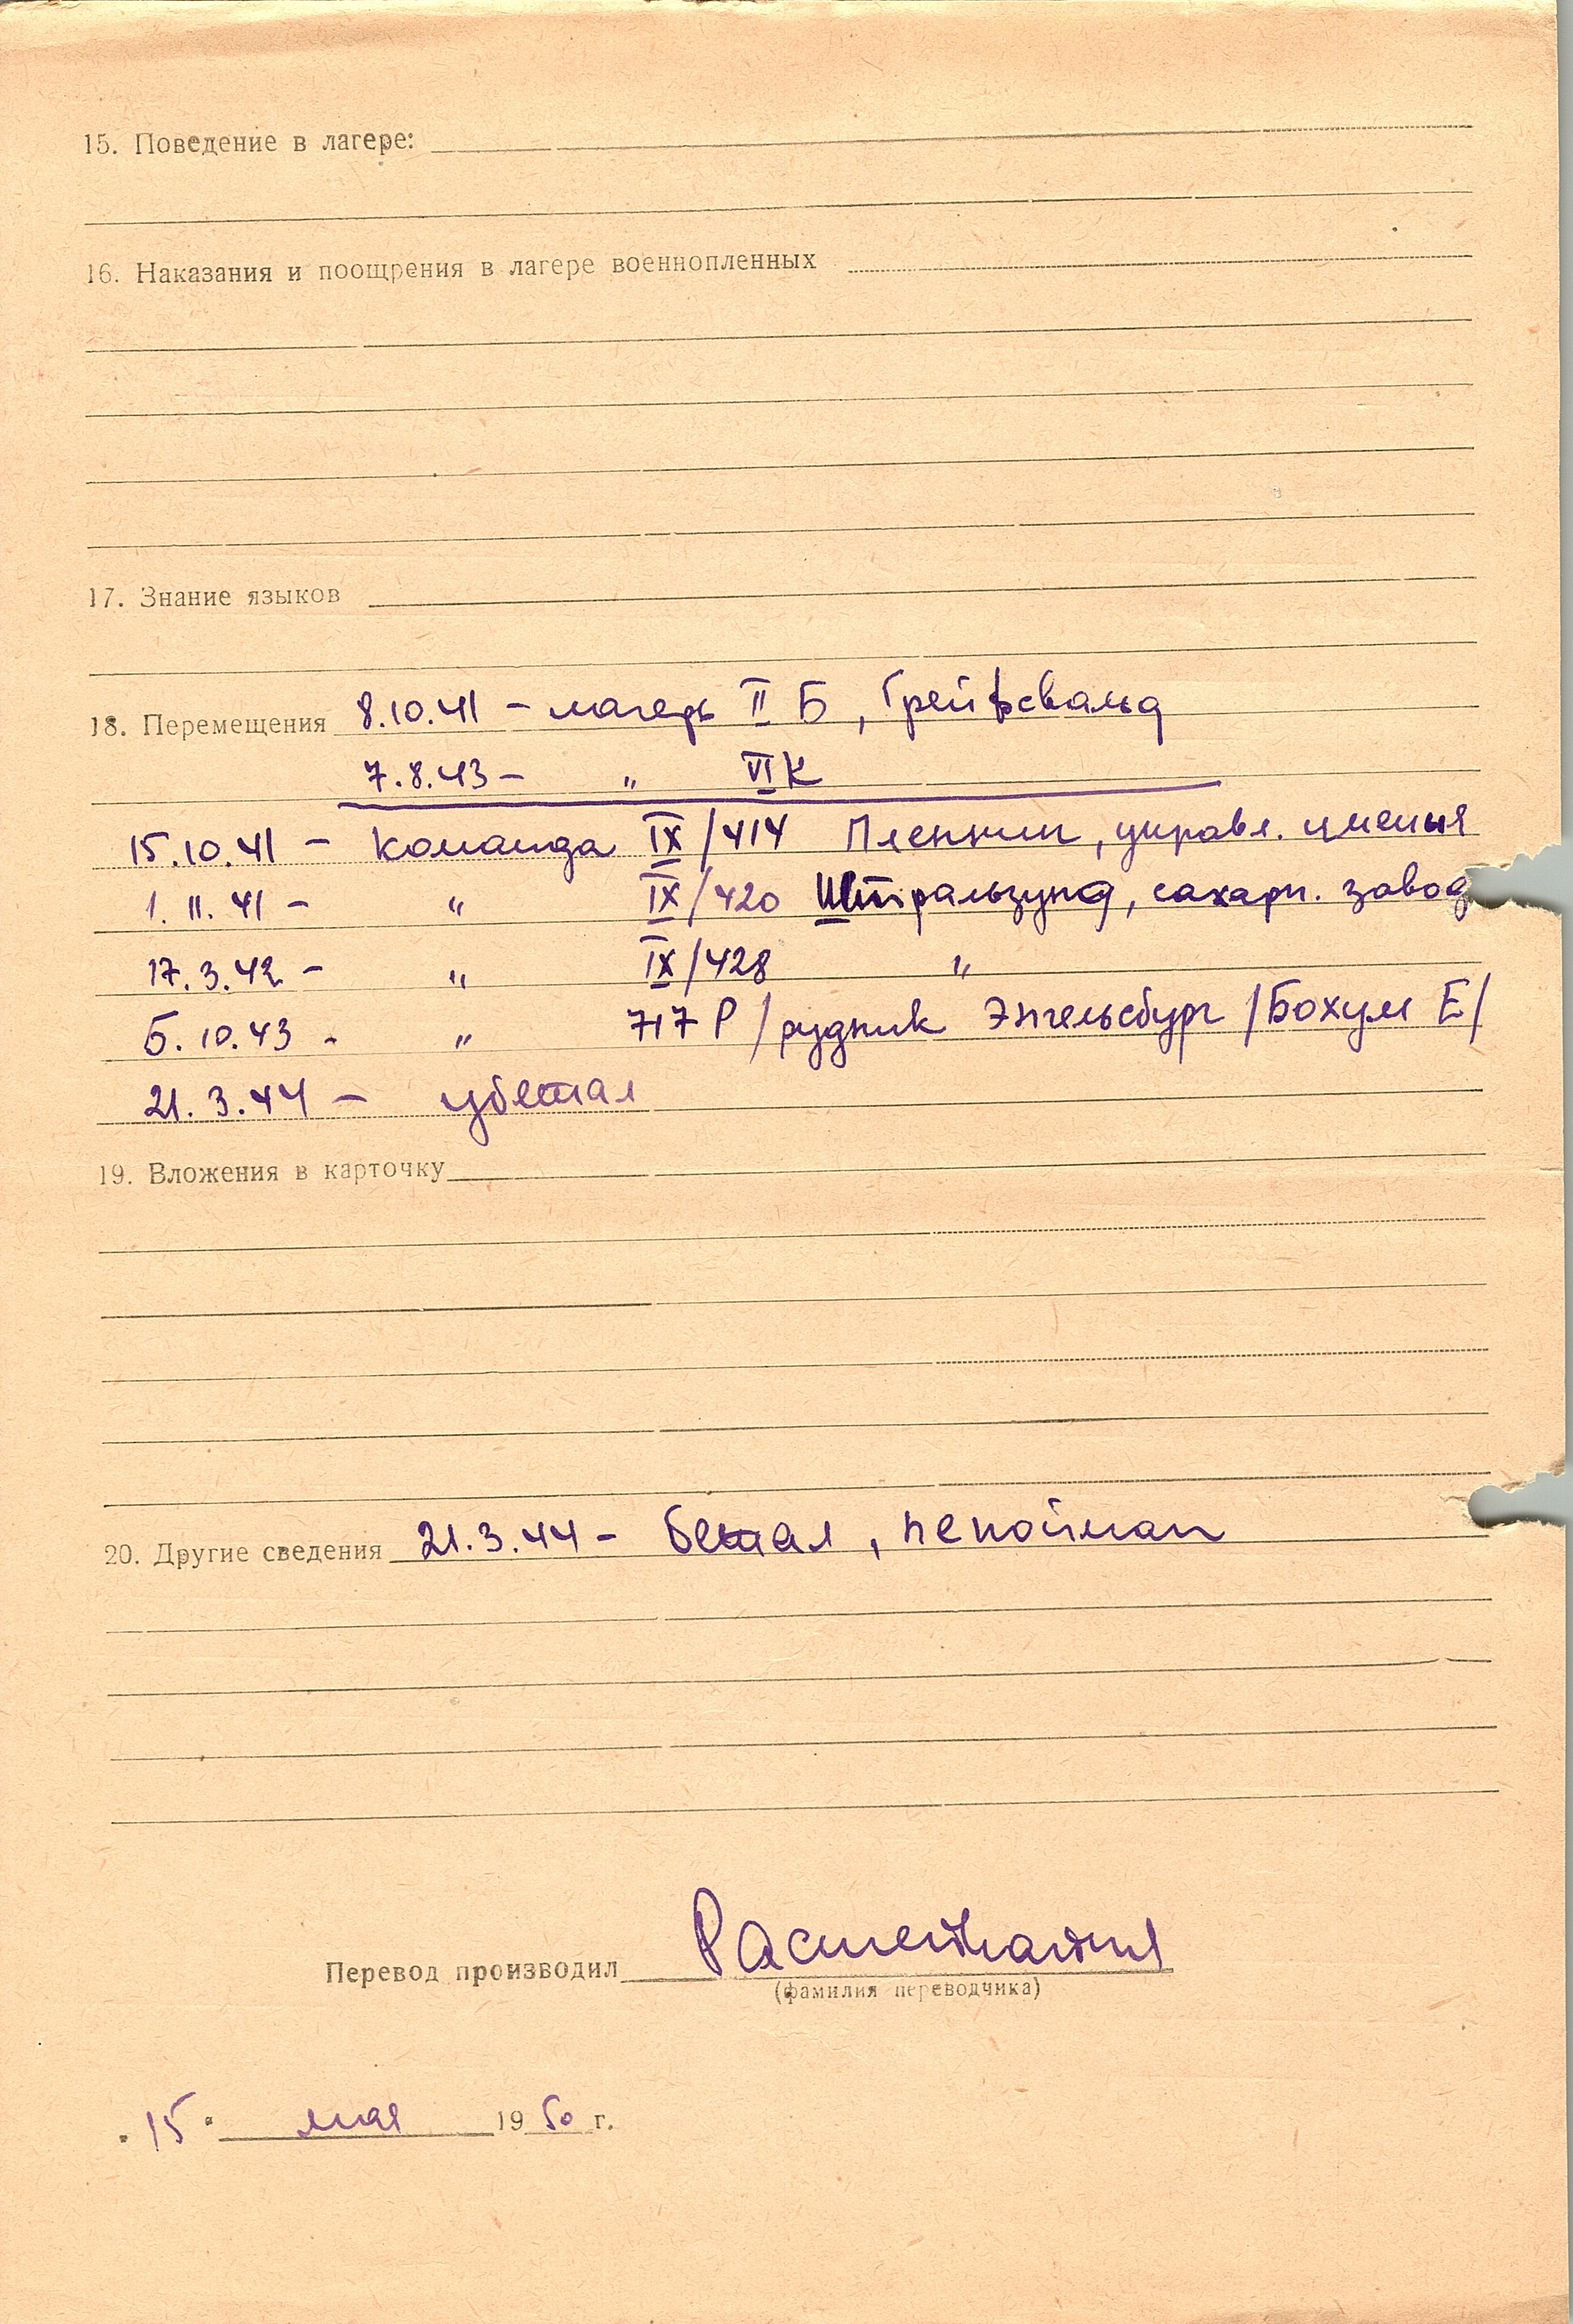 15. Поведение в лагере:
16. Наказания и поощрения в лагере военнопленных
17. Знание языков
18. Перемещения 8.10.41 – лагерь II Б, Грейфсвальд
7.8.43 – " VI К
15.10.41 – команда IX/414 Пленнин, управл. имения
1.11.41 – " IX/420 Штральзунд, сахарн. завод
17.3.42 – " IX/428 "
5.10.43 - " 717 Р /рудник Энгельсбург /Бохум Е/
21.3.44 – убежал
19. Вложения в карточку
20. Другие сведения 21.3.44 – бежал, непойман
Перевод производил
(фамилия переводчика)
"15" мая 1950 г.